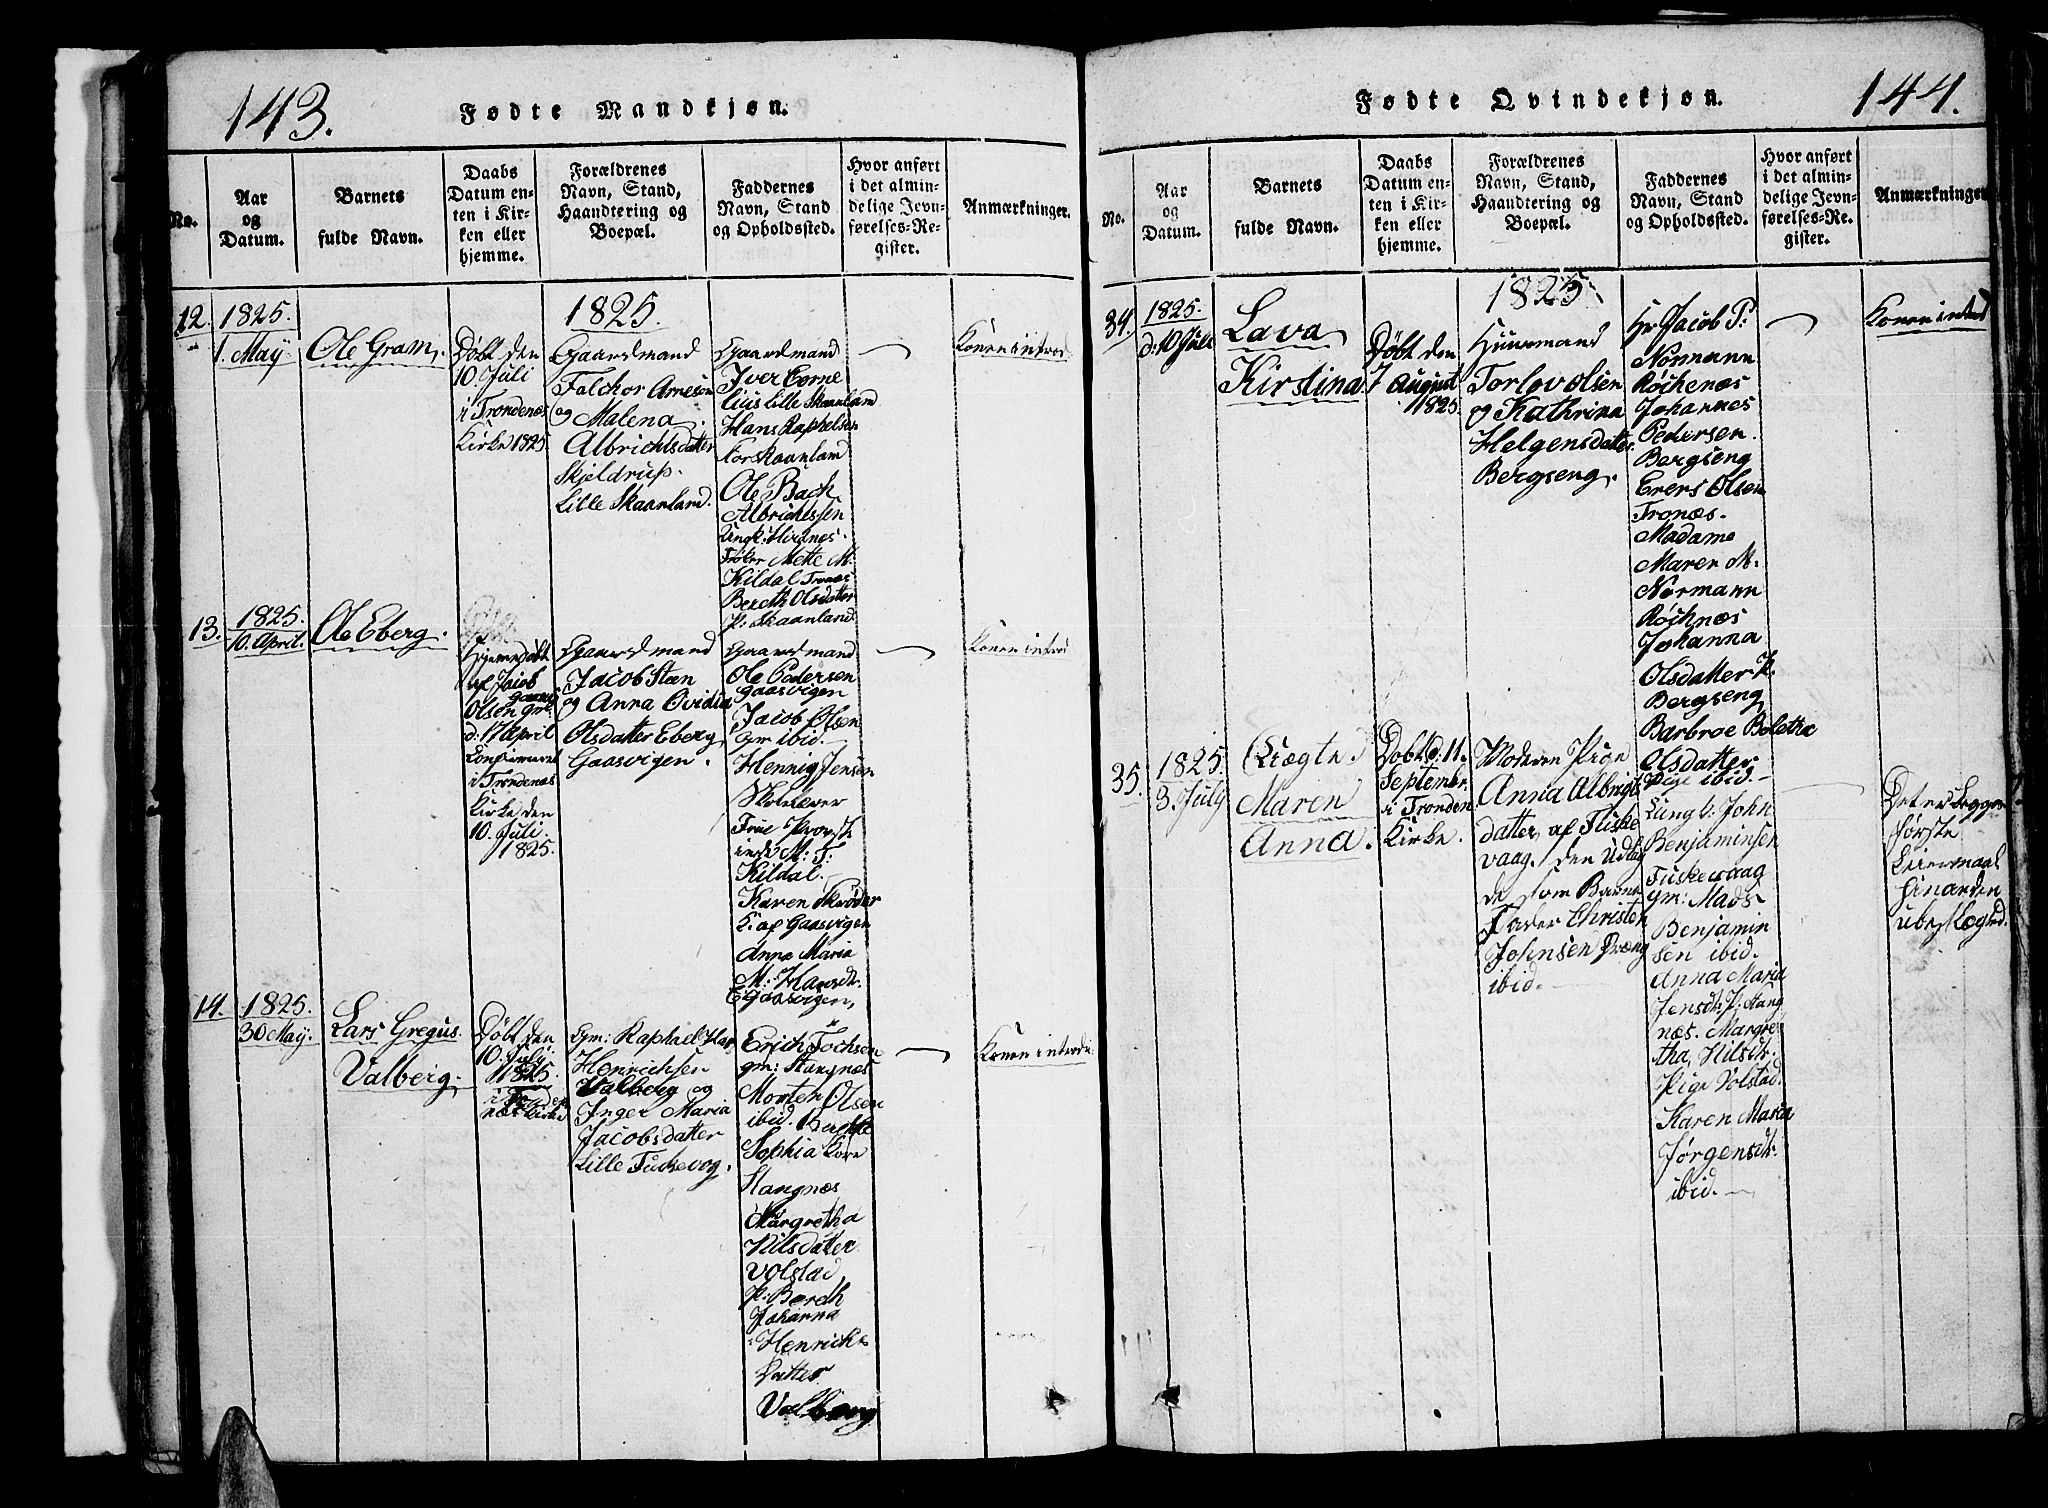 143.
Fødte Mandkjøn.
No.
Aar
og
Datum.
Barnets
fulde Navn.
Daabs
Datum en-
ten i Kir-
ken eller
hjemme.
Forældrenes
Navn, Stand,
Haandtering og
Boepæl.
Faddernes
Navn, Stand
og Opholdssted.
Hvor anført
i det almin-
delige Jevn-
førelses-Re-
gister.
Anmærkninger.
12.
1825.
1. May
Ole Gram.
Døbt den
10. Juli
i Trondenæs
Kirke 1825.
1825.
Gaardmand
Falchor Arnesen
og Malena
Albrichtsdatter
Skjeldrup.
Lille Skaanland.
Gaardmand
Iver Corne
lius Lille Skaanland
Hans Raphelsen
Ole Bach
Albrichtssen
Mette M.
Kildal Tronæs
Bereth Olsdatter
P: Skaanland
Konen introd.
13.
1825.
10. April.
Ole Eberg.
Hjemmedøbt
af Jacob
Olsen gm:
d: 17 April
Confirmeret
i Trondenæs
Kirke den
10. Juli.
1825.
Gaardmand
Jacob Steen
og Anna Ovidia
Olsdatter Eberg
Gaasvigen.
Gaardmand
Ole Pedersen
Gaasvigen
Jacob Olsen
Gm ibid.
Hennig Jensen
Skolelærer
Frue Provst
inde M: F:
Kildal.
Karen Skrøder
K. af Gaasvigen
Anne Maria
Gaasvigen,
Konen introd
14.
1825.
30 May.
Lars Gregus
Valberg.
Døbt den
10. July.
1825.
i Tronde
næs Kirke
Gm: Raphael
Henrichsen
Valberg og
Inger Maria
Jacobsdatter
Lille Fuskevog.
Erich Tochsen
gm: Stangnæs
Morten Olsen
ibid. Berethe
Sophia Kone
Stangnæs
Margretha
Nilsdatter
Volstad
P: Berdh
Johanna
Henrichs
Datter
Valberg
Konen introdu:
144.
Fødte Qvindekjøn.
No.
Aar
og
Datum.
Barnets
fulde Navn.
Daabs
Datum en-
ten i Kir-
ken eller
hjemme.
Forældrenes
Navn, Stand,
Haandtering og
Boepæl.
Faddernes
Navn, Stand
og Opholdssted.
Hvor anført
i det almin-
delige Jevn-
førelses-Re-
gister.
Anmærkninger
34.
1825.
d: 10 Juli
Lava
Kirstina
Døbt den
7 August
1825.
1825.
Huusmand
Torlov Olsen
og Kathrina
Helgensdatter
Bergseng.
Hr Jacob P:
Normann
Røchenæs
Johannes
Pedersen.
Bergseng
Erers Olsen
Tronæs.
Madame
Maren M.
Normann
Røchnæs
Johanna
Olsdatter P.
Bergseng
Barbroe Boletha
Olsdatter
Pige ibid.
Konen introd
35.
1825.
3. July
(Uægte)
Maren
Anna.
Døbt d: 11.
September
i Tronden
Kirke.
Moderen Pige
Anna Albrigt
datter, af Fuske
vaag. Den Udlag
de som Barne
Fader Christen
Johnsen Dræng
ibid.
Ungk: John
Benjaminsen
Fuskevaag
gm: Mads
Benjamin
sen ibid.
Anna Maria
Jensdtr P: Stang
næs. Margre
tha, Nilsdtr
Pige Volstad.
Karen Maria
Jørgensdtr
ibid.
Det er begges
første
Leiermaal